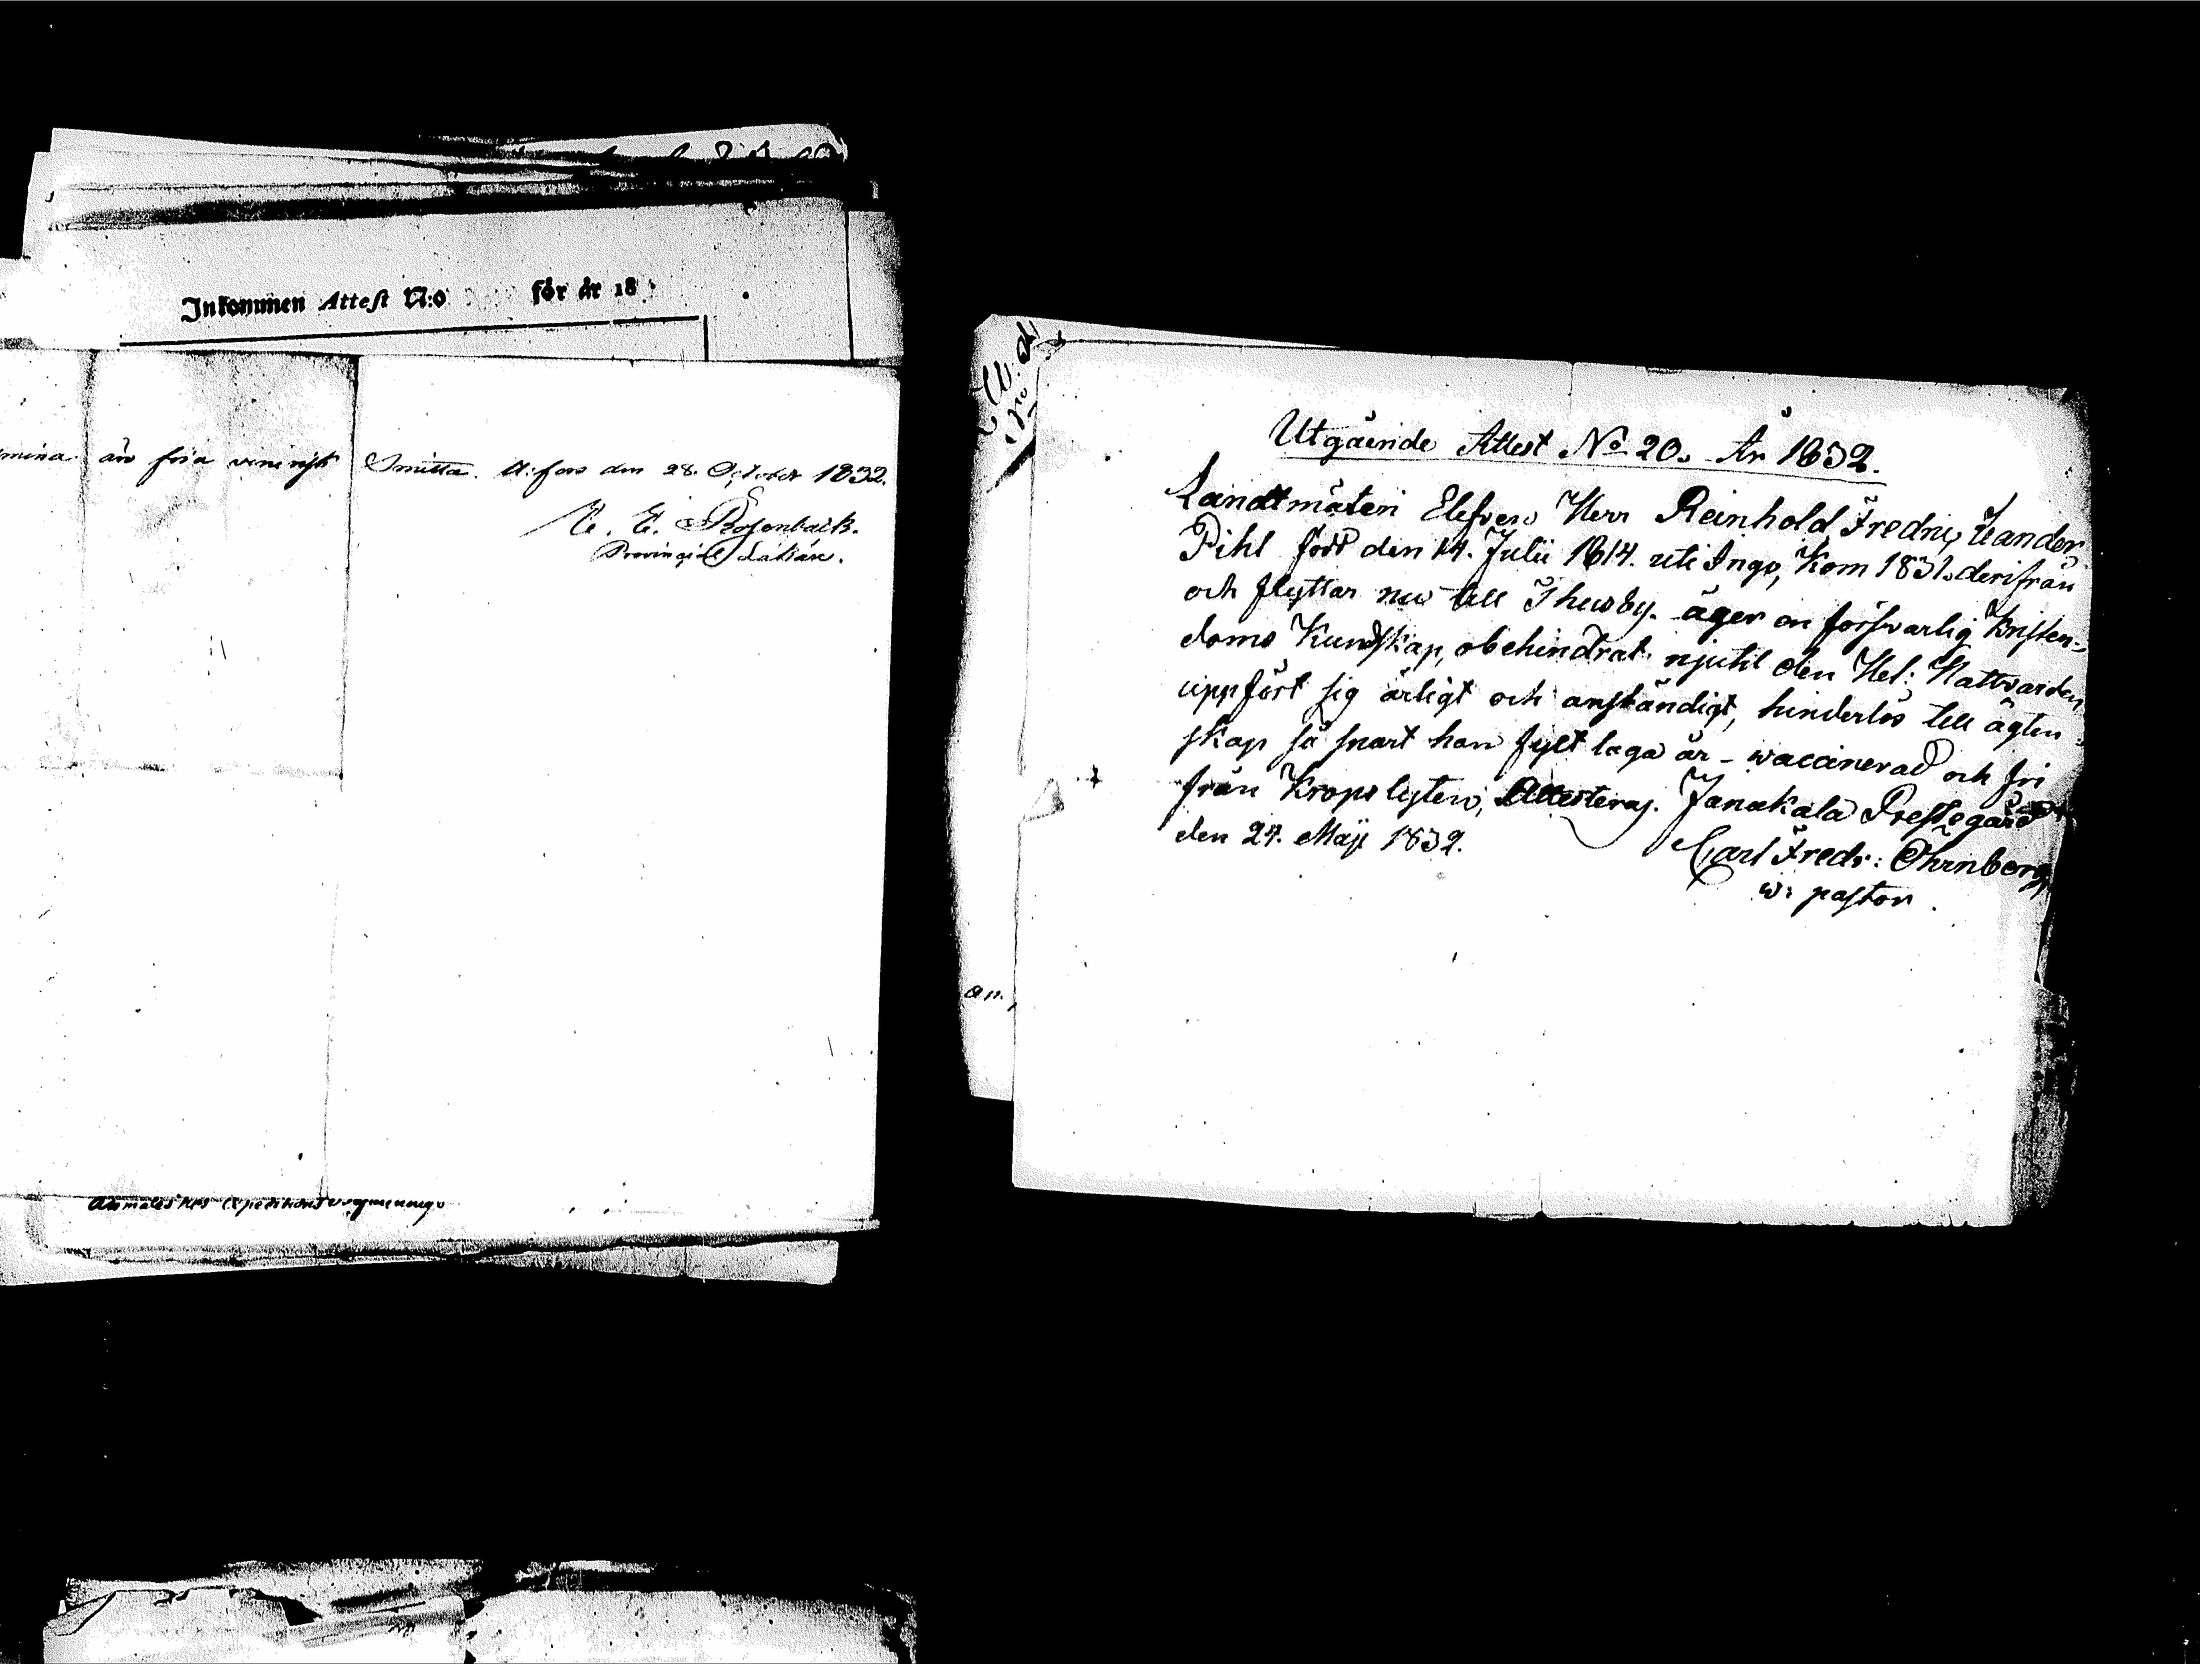 Inkommen Attest N:o för år 18
äro fria venerisk Smitta. H:fors den 28. October 1832.
E. Rosenback.
Provinzial Läkare.
Utgående Attest No 20. År 1832.
Landtmäteri Elefven Herr Reinhold Fredric Leander
Pihl född den 14. Julii 1814. uti Ingo, Kom 1831. derifrån
och flyttar nu till Thusby. äger en försvarlig Kristen-
doms Kundskap, obehindrat njutit den Hel: Nattvarden,
uppfört sig ärligt och anständigt, hinderlös till ägten-
skap så snart han fylt laga år - waccinerad och fri
från Kropslyten, Attesteras. Janakala Prestegård
den 24. Maji 1832.
Carl Fredr: Öhrnberg
w: pastor.